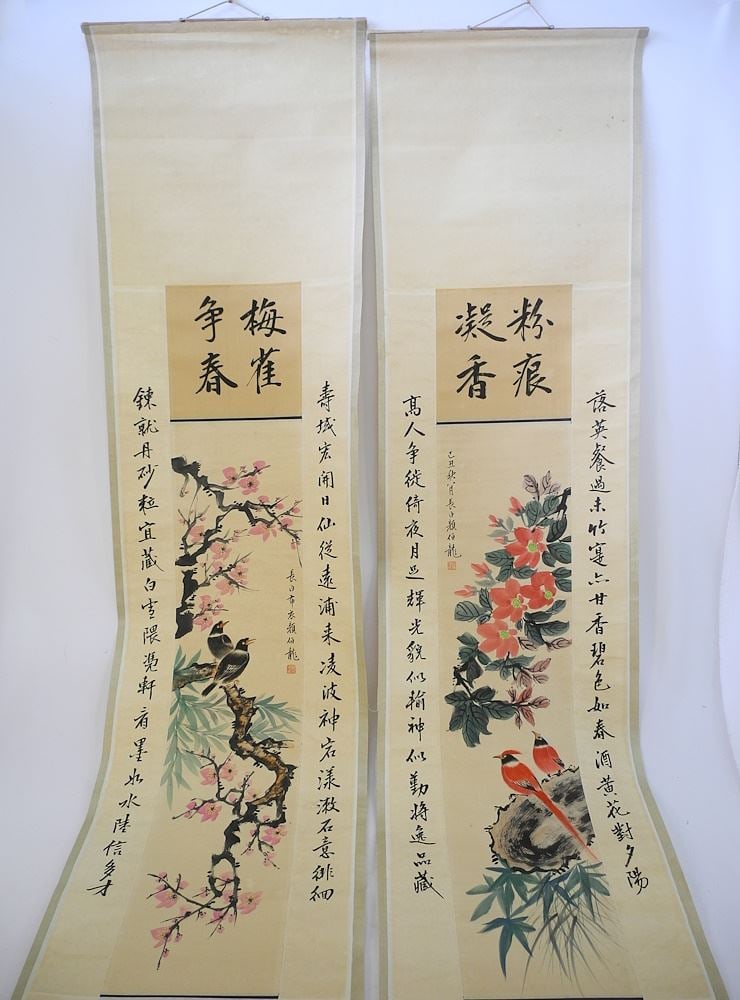 粉痕
凝香
落英餐過未竹寔亦甘香碧色如春酒黃花對夕陽
高人爭徙倚夜月正輝光貌似輸神似勤將逸品藏
己丑秋八月長白顏伯龍
梅雀
争春
壽域宏開日仙從遠浦来凌波神宕漾漱石意徘徊
鍊就丹砂粒宜藏白雲隈憑軒看墨水陸信多才
長白布衣顏伯龍